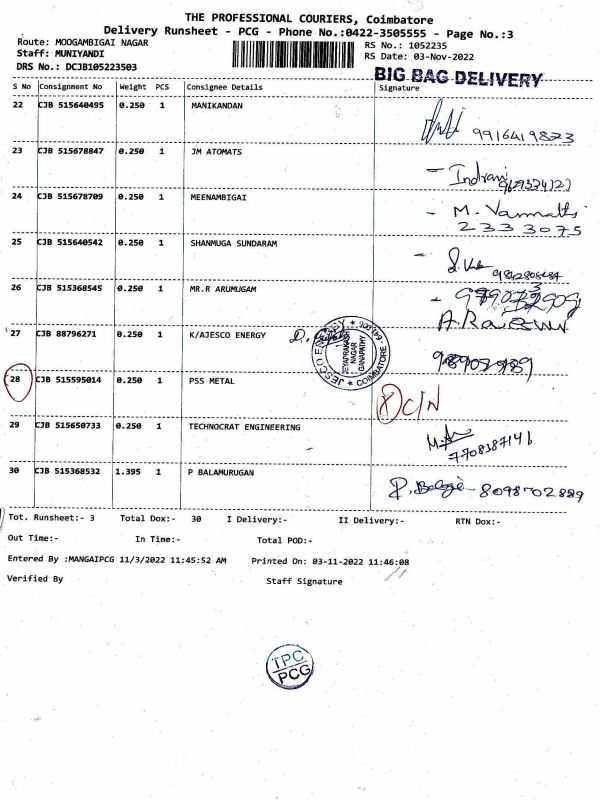 THE PROFESSIONAL COURIERS, Coimbatore
Delivery Runsheet - PCG - Phone No.:0422-3505555 - Page No.:3
Route: MOOGAMBIGAI NAGAR
RS No.: 1052235
Staff: MUNIYANDI
RS Date: 03-Nov-2022
DRS No.: DCJB105223503
BIG BAG DELIVERY
S No Consignment No Weight PCS Consignee Details Signature
22 CJB 515640495 0.250 1 MANIKANDAN
9916419823
23 CJB 515678847 0.250 1 JM ATOMATS
Indrani
24 CJB 515678709 0.250 1 MEENAMBIGAI
- M.
2333075
25 CJB 515640542 0.250 1 SHANMUGA SUNDARAM
26 CJB 515368545 0.250 1 MR.R ARUMUGAM
27 CJB 88796271 0.250 1 K/AJESCO ENERGY
JESCO ENERGY * COIMBATORE
NAGAR
GANAPATHY
28 CJB 515595014 0.250 1 PSS METAL
29 CJB 515650733 0.250 1 TECHNOCRAT ENGINEERING
7708387146
30 CJB 515368532 1.395 1 P BALAMURUGAN
8098702889
Tot. Runsheet:- 3 Total Dox:- 30 I Delivery:- II Delivery:- RTN Dox:-
Out Time:- In Time:- Total POD:-
Entered By :MANGAIPCG 11/3/2022 11:45:52 AM Printed On: 03-11-2022 11:46:08
Verified By Staff Signature
TPC
PCG